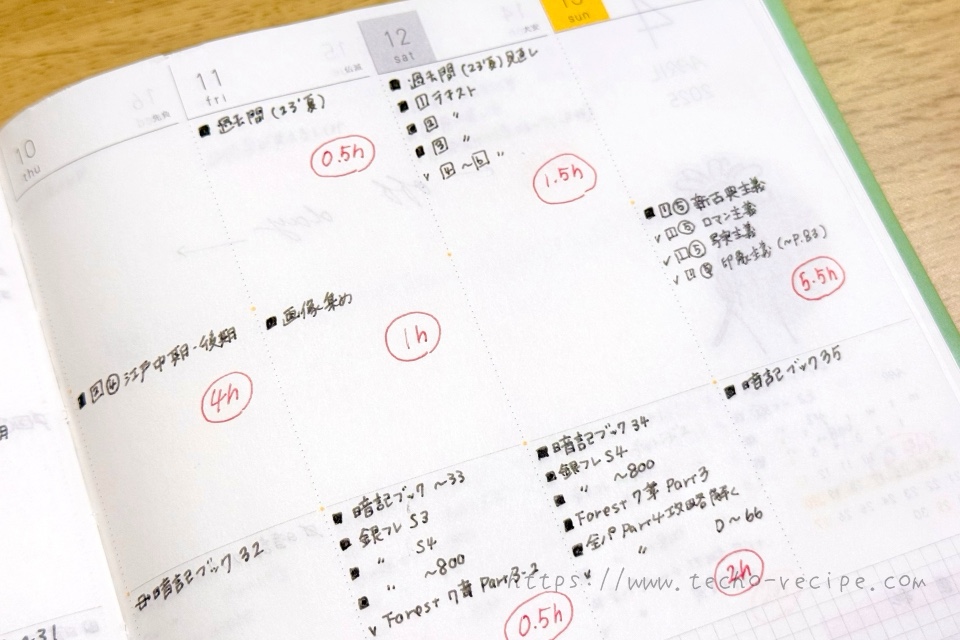 10
thu
11
fri
仏滅
12
sat
大安
sun
■ 過去問 (23'夏)
0.5h
■ 過去問 (23'夏) 見直し
■ 1 テキスト
■ 2 〃
■ 3 〃
v 4 ~ 6 〃
1.5h
■ 1 ⑤ 新古典主義
v 1 ⑤ ロマン主義
v 1 ⑤ 写実主義
v 1 ⑤ 印象主義 (~P.83)
5.5h
■ 3 ④ 江戸中期・後期
4h
■ 画像集め
1h
暗記ブック 32
■ 暗記ブック ~33
■ 銀フレ S3
■ 〃 S4
■ 〃 ~800
v Forest 7章 Part3-2
0.5h
■ 暗記ブック 34
■ 銀フレ S4
■ 〃 ~800
■ Forest 7章 Part3
■ 金パ Part4 攻略 解く
v 〃 D~66
2h
■ 暗記ブック 35
https://www.techo-recipe.com